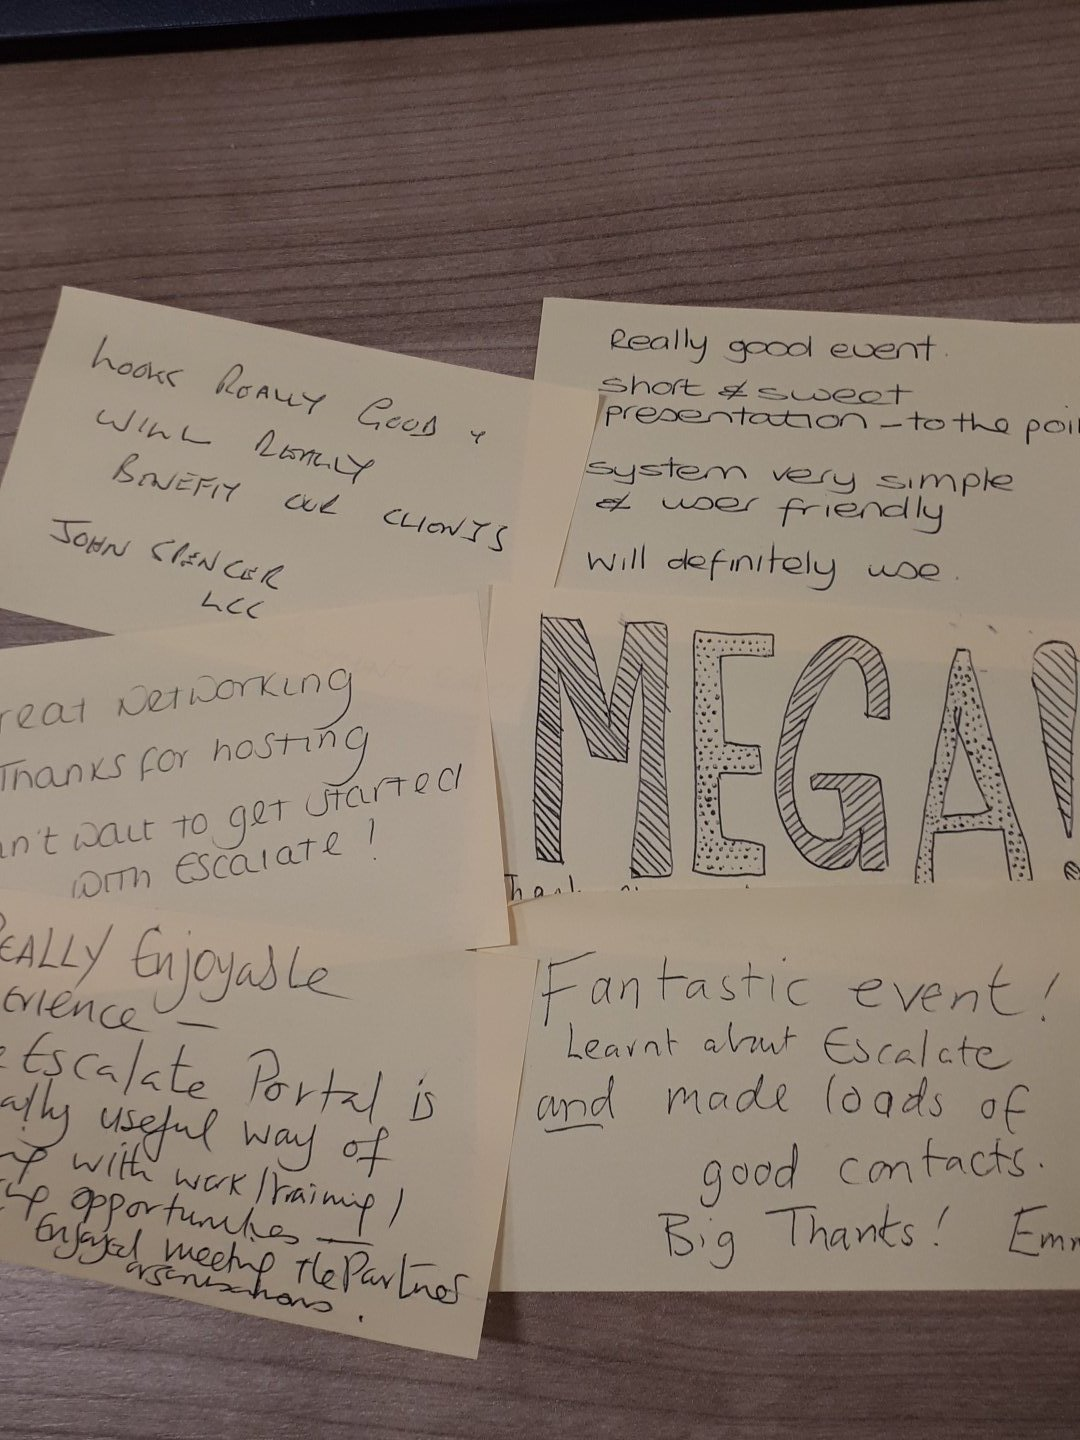 Looks Really Good &
Will Really
Benefit our clients
John Spencer
LCC
Really good event.
short & sweet
presentation – to the poi
system very simple
& user friendly
will definitely use.
reat Networking
Thanks for hosting
an't wait to get started
with Escalate!
MEGA!
REALLY Enjoyable
erience —
e Escalate Portal is
ally useful way of
with work/training/
opportunities —
Enjoyed meeting the Partner
organisations.
Fantastic event!
Learnt about Escalate
and made loads of
good contacts.
Big Thanks! Emm